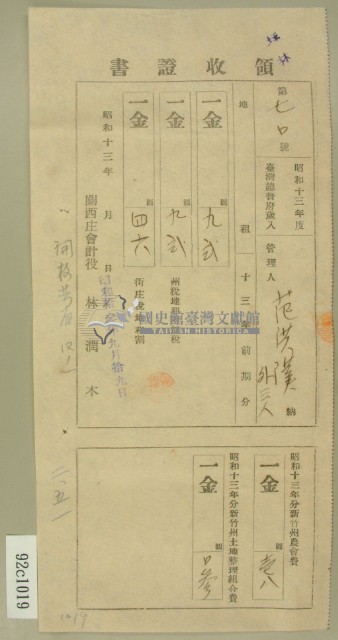 領收證書
第七〇號
昭和十三年度
臺灣總督府歲入
管理人 范洪漢 外三人 納
地租 十三年前期分
一金 圓 九弍
一金 圓 九弍
州稅地租附加稅
一金 圓 四六
街庄稅地租割
昭和十三年 月 日
昭和拾參年九月拾九日
關西庄會計役 林潤木
國史館臺灣文獻館
TAIWAN HISTORICA
昭和十三年分新竹州農會費
一金 圓 壱八
昭和十三年分新竹州土地整理組合費
一金 圓 〇參
二、五一
92c1019
1019